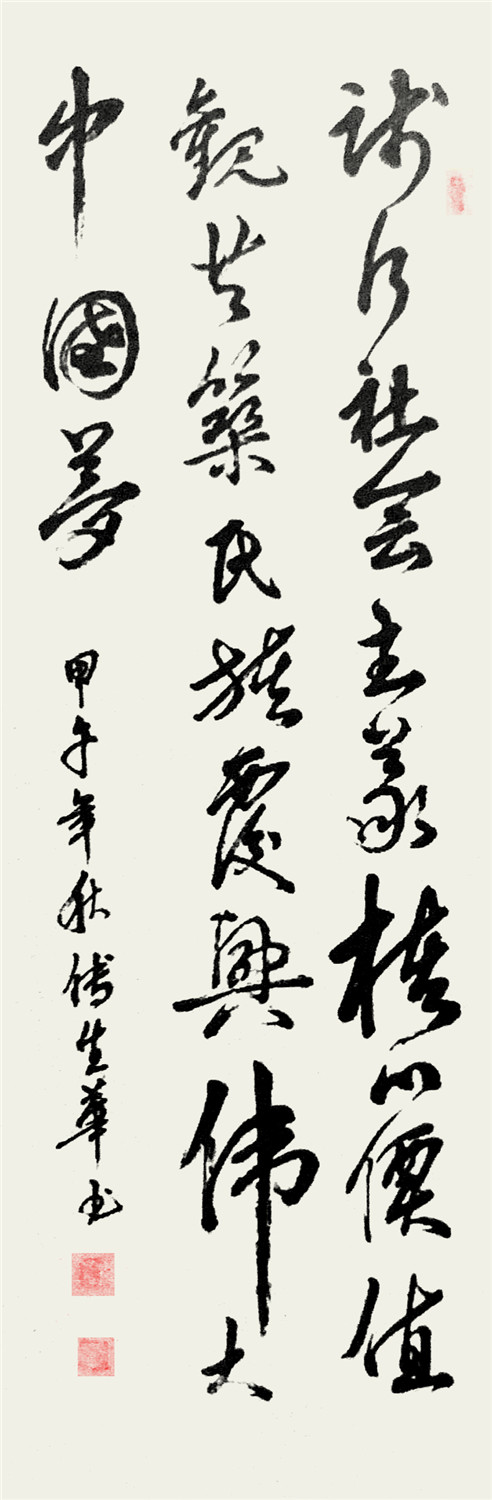 踐行社会主義核心價值
觀共築民族覆興伟大
中國夢
甲午年秋傅生華书